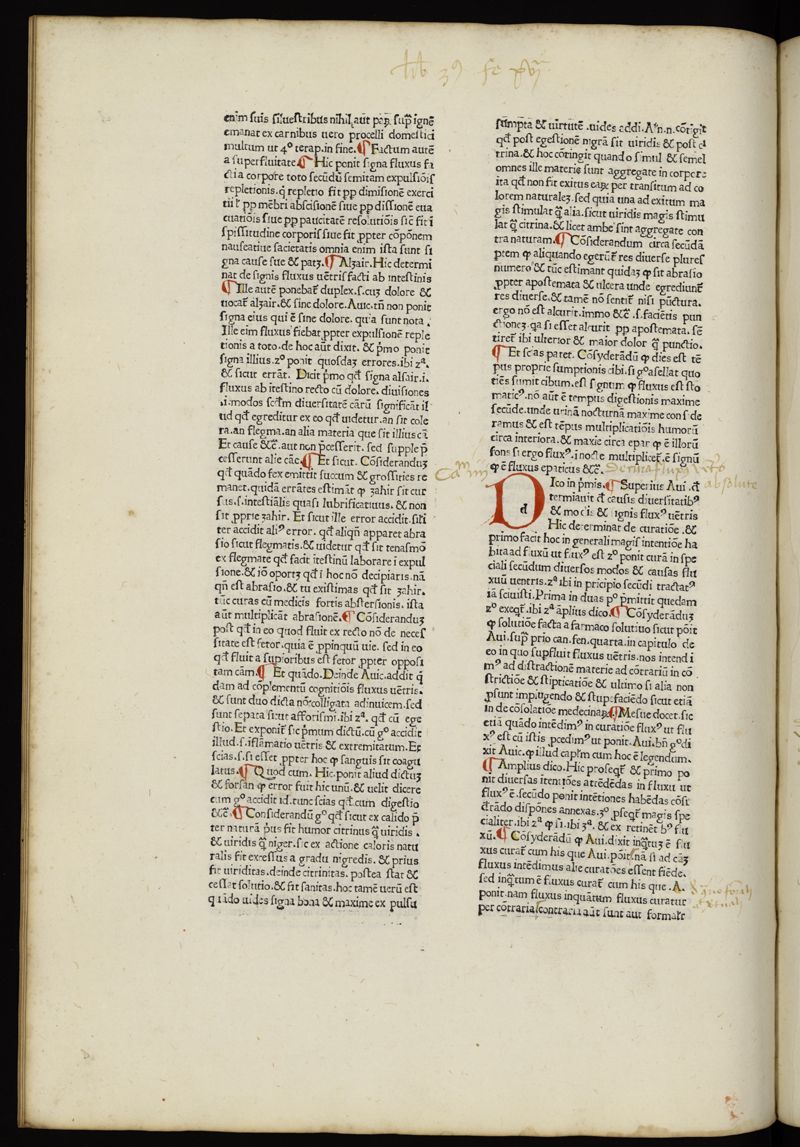 enim suis siluestribus nihil aūt ꝑꝑ. sup̄ ignē
emanat ex carnibus uero procelli domestici
multum ut 4° terap. in fine. ¶ Factum autē
a superfluitate ¶ Hic ponit signa fluxus fa
cti a corpore toto secūdū semitam expulsiōis
repletionis. q̄ repletio fit pp dimisionē exerci
tii pp mēbri abscisionē siue pp dissionē eua
cuatiōis siue pp paucitatē resolutiōis sic fit ī
spissitudine corporis siue fit ꝓpter cōpōnem
nauseatiue sacietatis omnia enim ista sunt si
gna cause sue & patꝫ. ¶ Alꝫair. Hic determi
nat de signis fluxus uētris facti ab intestinis
¶ Ille autē ponebat̄ duplex. s. cuꝫ dolore &
uocat̄ alꝫair. & sine dolore. Auic. tn̄ non ponit
signa eius qui ē sine dolore. quia sunt nota.
Ille eim fluxus fiebat ꝓpter expulsionē reple
tionis a toto. de hoc aūt dixit. & pͥmo ponit
signa illius. z° ponit quosdaꝫ errores. ibi zª.
& sicut errāt. Dicit pͥmo qd̄ signa alsair. i.
fluxus ab ītestino recto cū dolore. diuisiones
.i. modos sctm̄ diuersitatē cārū significāt il
ud qd̄ egreditur ex eo qd̄ uidetur. an sit cole
ra. an flegma. an alia materia que sit illius cā
Et cause &c̄. aut non p̄cesserit. sed supple p̄
cesserunt alie cāe. ¶ Et sicut. Cōsiderandū
qd̄ quādo fex emittit succum & grossities re
manet. quidā errātes estimāt ꝙ ꝫahir sit cur
sus. s. intestīalis quasi lubrificatiuus. & non
sit ꝓprie ꝫahir. Et sicut ille error accidit. sil̄i
ter accidit ali⁹ error. qd̄ aliqn̄ apparet abra
sio sicut flegmatis. & uidetur qd̄ sit tenasmō
ex flegmate qd̄ facit itestinū laborare i expul
sione. & iō oportꝫ qd̄ i hoc nō decipiaris. nā
qn̄ est abrasio. & tu existimas qd̄ sit ꝫahir.
tūc curas cū medicis fortis abstersionis. ista
aūt multiplicāt abrasionē. ¶ Cōsiderandū
post qd̄ in eo quod fluit ex recto nō de neces
sitate est fetor. quia ē ꝓpinquū uie. sed in eo
qd̄ fluit a sup̄oribus est fetor ꝓpter opposi
tam cām. ¶ Et quādo. Deinde Auic. addit q̄
dam ad cōplementū cognitiōis fluxus uētris.
& sunt duo dicta nō colligata adinuicem. sed
sunt sepata sicut afforismi. ibi zª. qd̄ cū ege
stio. Et exponit̄ sic pͥmum dictū. cū g° accidit
illud. s. iflamatio uētris & extremitatum. Et
scias. s. si esset ꝓpter hoc ꝙ sanguis sit coagu
latus. ¶ Quod cum. Hic ponit aliud dictuꝫ
& forsan ꝙ error fuit hic unū. & uelit dicere
cum g° accidit id. tunc scias qd̄ cum digestio
&c̄. ¶ Considerandū g° qd̄ sicut ex calido p̄
ter naturā pus fit humor citrinus q̄ uiridis.
& uiridis q̄ niger. sic ex actione caloris natu
ralis fit excessus a gradu nigredis. & prius
fit uiriditas. deinde citrinitas. postea stat &
cessat solutio. & fit sanitas. hoc tamē uerū est
quādo uides signa bona & maxime ex pulsu
sumpta & uirtutē. uides addi. A. n. n. cōtīgit
qd̄ post egestionē nigrā fit uiridis & post ci
trina. & hoc cōtingit quando simul & semel
omnes ille materie sunt aggregate in corpore
ita qd̄ non fit exitus eaꝝ per transitum ad co
lorem naturaleꝫ. sed quia una ad exitum ma
gis stimulat q̄ alia. sicut uiridis magis stimu
lat q̄ citrina. & licet ambe sint aggregate con
tra naturam. ¶ Cōsiderandum circa secūdā
ptem ꝙ aliquando egerūt̄ res diuerse plures
numero & tūc estimant quidaꝫ ꝙ sit abrasio
.ꝓpter apostemata & ulcera unde egrediunt̄
res diuerse. & tamē nō sentit̄ nisi pūctura.
ergo nō est alcurit. immo &c̄. s. faciētis pun
ctionez. qa si esset alcurit pp apostemata. sē
tiret̄ ibi ulterior & maior dolor q̄ punctio.
¶ Et scias patet. Cōsyderādū ꝙ dies est tē
pus proprie sumptionis cibi. si g° asellat quo
tiēs sumit cibum. est signum ꝙ fluxus est sto
matic⁹. nō aūt ē tempus digestionis maxime
secūde. unde urinā nocturnā maxime consi de
ramus & est tēpus multiplicatiōis humorū
circa interiora. & maxie circa epar ꝙ ē illorū
fons si ergo flux⁹. i nocte multiplicet̄. ē signū
ꝙ ē fluxus epaticus &c̄.
Dico in pͥmis. ¶ Superius Aui. d̄
termiauit d̄ causis diuersitatib⁹
& modis & signis flux⁹ uētris
Hic determinat de curatiōe. &
primo facit hoc in generali magis intentiōe ha
bita ad fluxū ut flux⁹ est z° ponit curā in spe
ciali secūdum diuersos modos & causas flu
xuū uentris. zª ibi in pricipio secūdi tractat⁹
iā sciuisti. Prima in duas pº pͥmittit quedam
z° exeqt̄. ibi zª āplius dico. ¶ Cōsyderāduꝫ
ꝙ solutiōe facta a farmaco solutiuo sicut pōit
Aui. sup̄ prio can. fen. quarta. in capitulo de
eo in quo supfluit fluxus uētris. nos intend i
m⁹ ad distractionē materie ad cōtrariū in cō
strictiōe & stipticatiōe & ultimo si alia non
ꝓsunt impīugendo & stupefaciēdo sicut etiā
in de cōsolatiōe medecinaꝝ. ¶ Mesue docet. sic
etiā quādo intēdim⁹ in curatiōe flux⁹ ut flu
x⁹ est cū istis ꝓcedim⁹ ut ponit. Aui. bn̄ g° di
xit Auic. ꝙ illud caplm̄ cum hoc ē legendum.
¶ Amplius dico. Hic proseqt̄ & primo po
nit diuersas itentiōes atēdēdas in fluxu ut
flux⁹ ē. secūdo ponit intētiones habēdas cōsi
derādo dispōnes annexas. 3° ꝓseqt̄ magis spe
cialiter. ibi zª ꝙ si. ibi 3ª. & ex retinēt b⁹ flu
xū. ¶ Cōsyderādū ꝙ Aui. dixit inq̄tuꝫ ē flu
xus curat̄ cum his que Aui. pōit. nā si ad eāꝫ
fluxus intēdimus alie curatōes essent fiēde.
sed inq̄tum ē fluxus curat̄ cum his que. A.
ponit nam fluxus inquātum fluxus curatur
per cōtraria. contraria aūt sunt aut formatr̄
absolute